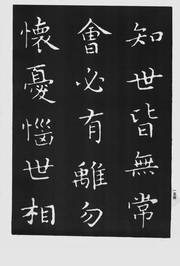 知世皆無常
會必有離勿
懷憂惱世相